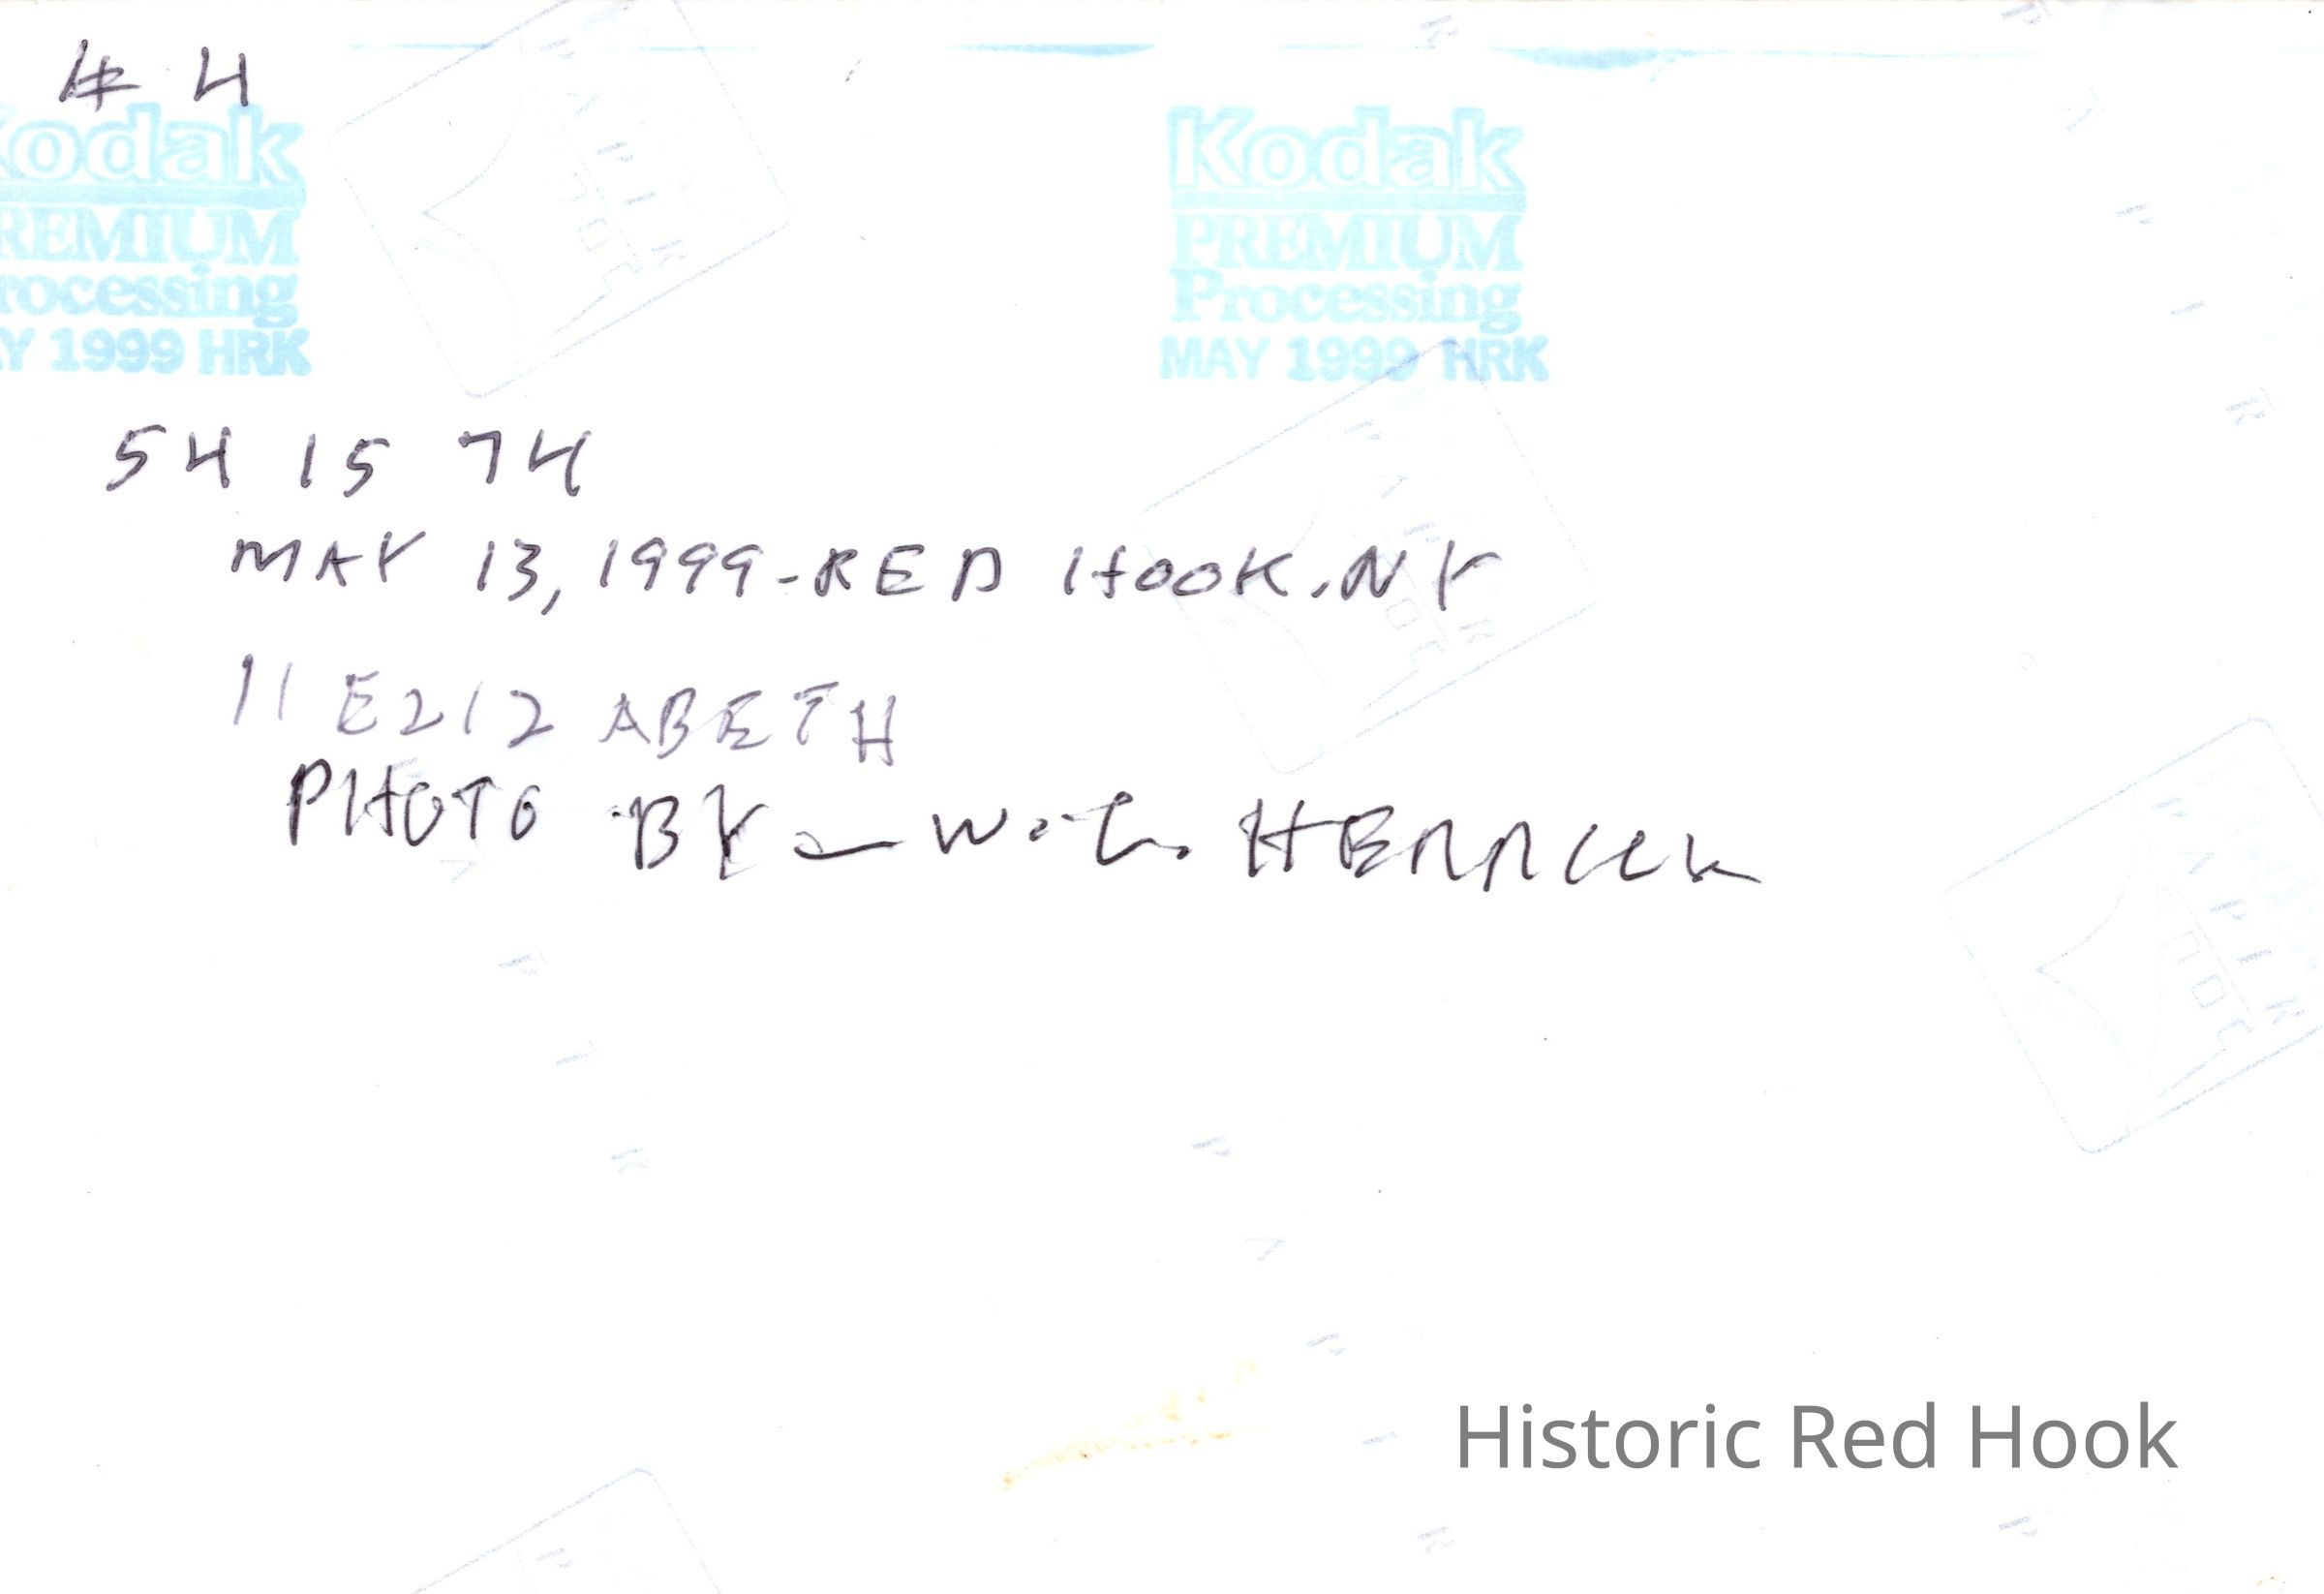 # 4
Kodak
PREMIUM
Processing
MAY 1999 HRK
odak
REMIUM
rocessing
Y 1999 HRK
54 15 74
MAY 13, 1999-RED HOOK. NY
11 E212 ABETH
PHOTO BY - W. HERRICK
Historic Red Hook